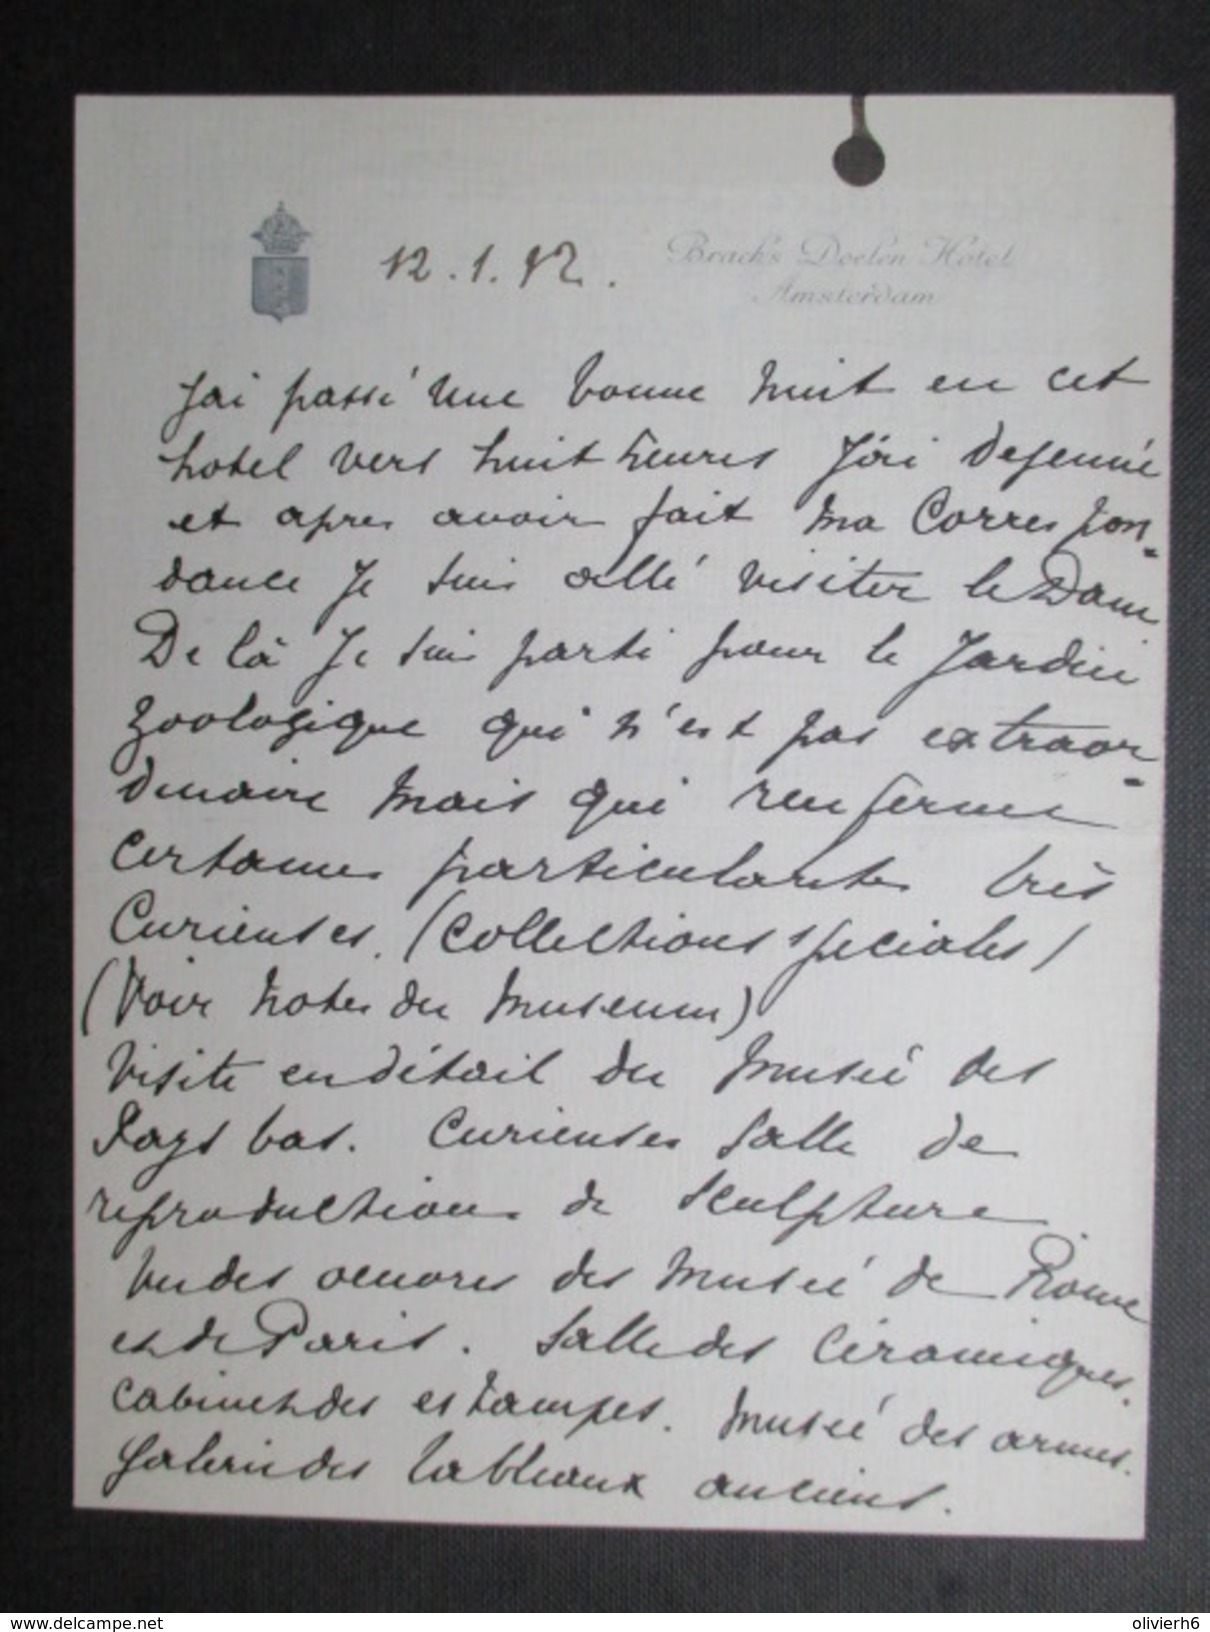 12.1.12.
Brack's Doelen Hôtel
Amsterdam
J'ai passé une bonne nuit en cet
hotel vers huit heures J'ai dejeuné
et apres avoir fait ma Correspon-
dance Je suis allé visiter le Dam
De là Je suis parti pour le Jardin
Zoologique qui n'est pas extraor-
dinaire mais qui renferme
certaines particularités très
Curieuses. (collections speciales)
(Voir notes du Museum)
Visite en détail du Musée des
Pays bas. Curieuses salle de
reproductions de sculpture
vu des oeuvres des Musée de Rome
et de Paris. Salle des Céramiques.
Cabinet des estampes. Musée des armes.
Galerie des tableaux anciens.
www.delcampe.net
olivierh6